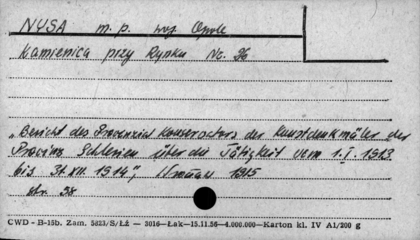 NYSA m. p. woj. Opole
Kamienica przy Rynku Nr. 36
"Bericht des Provinzial Konservators der Kunstdenkmäler der
Provinz Schlesien über die Tätigkeit vom 1.I.1913
bis 31.XII.1914", 1915
str. 38
CWD - B-15b. Zam. 5823/S/ŁŻ — 3016—Łak—15.11.56—4.000.000—Karton kl. IV A1/200 g